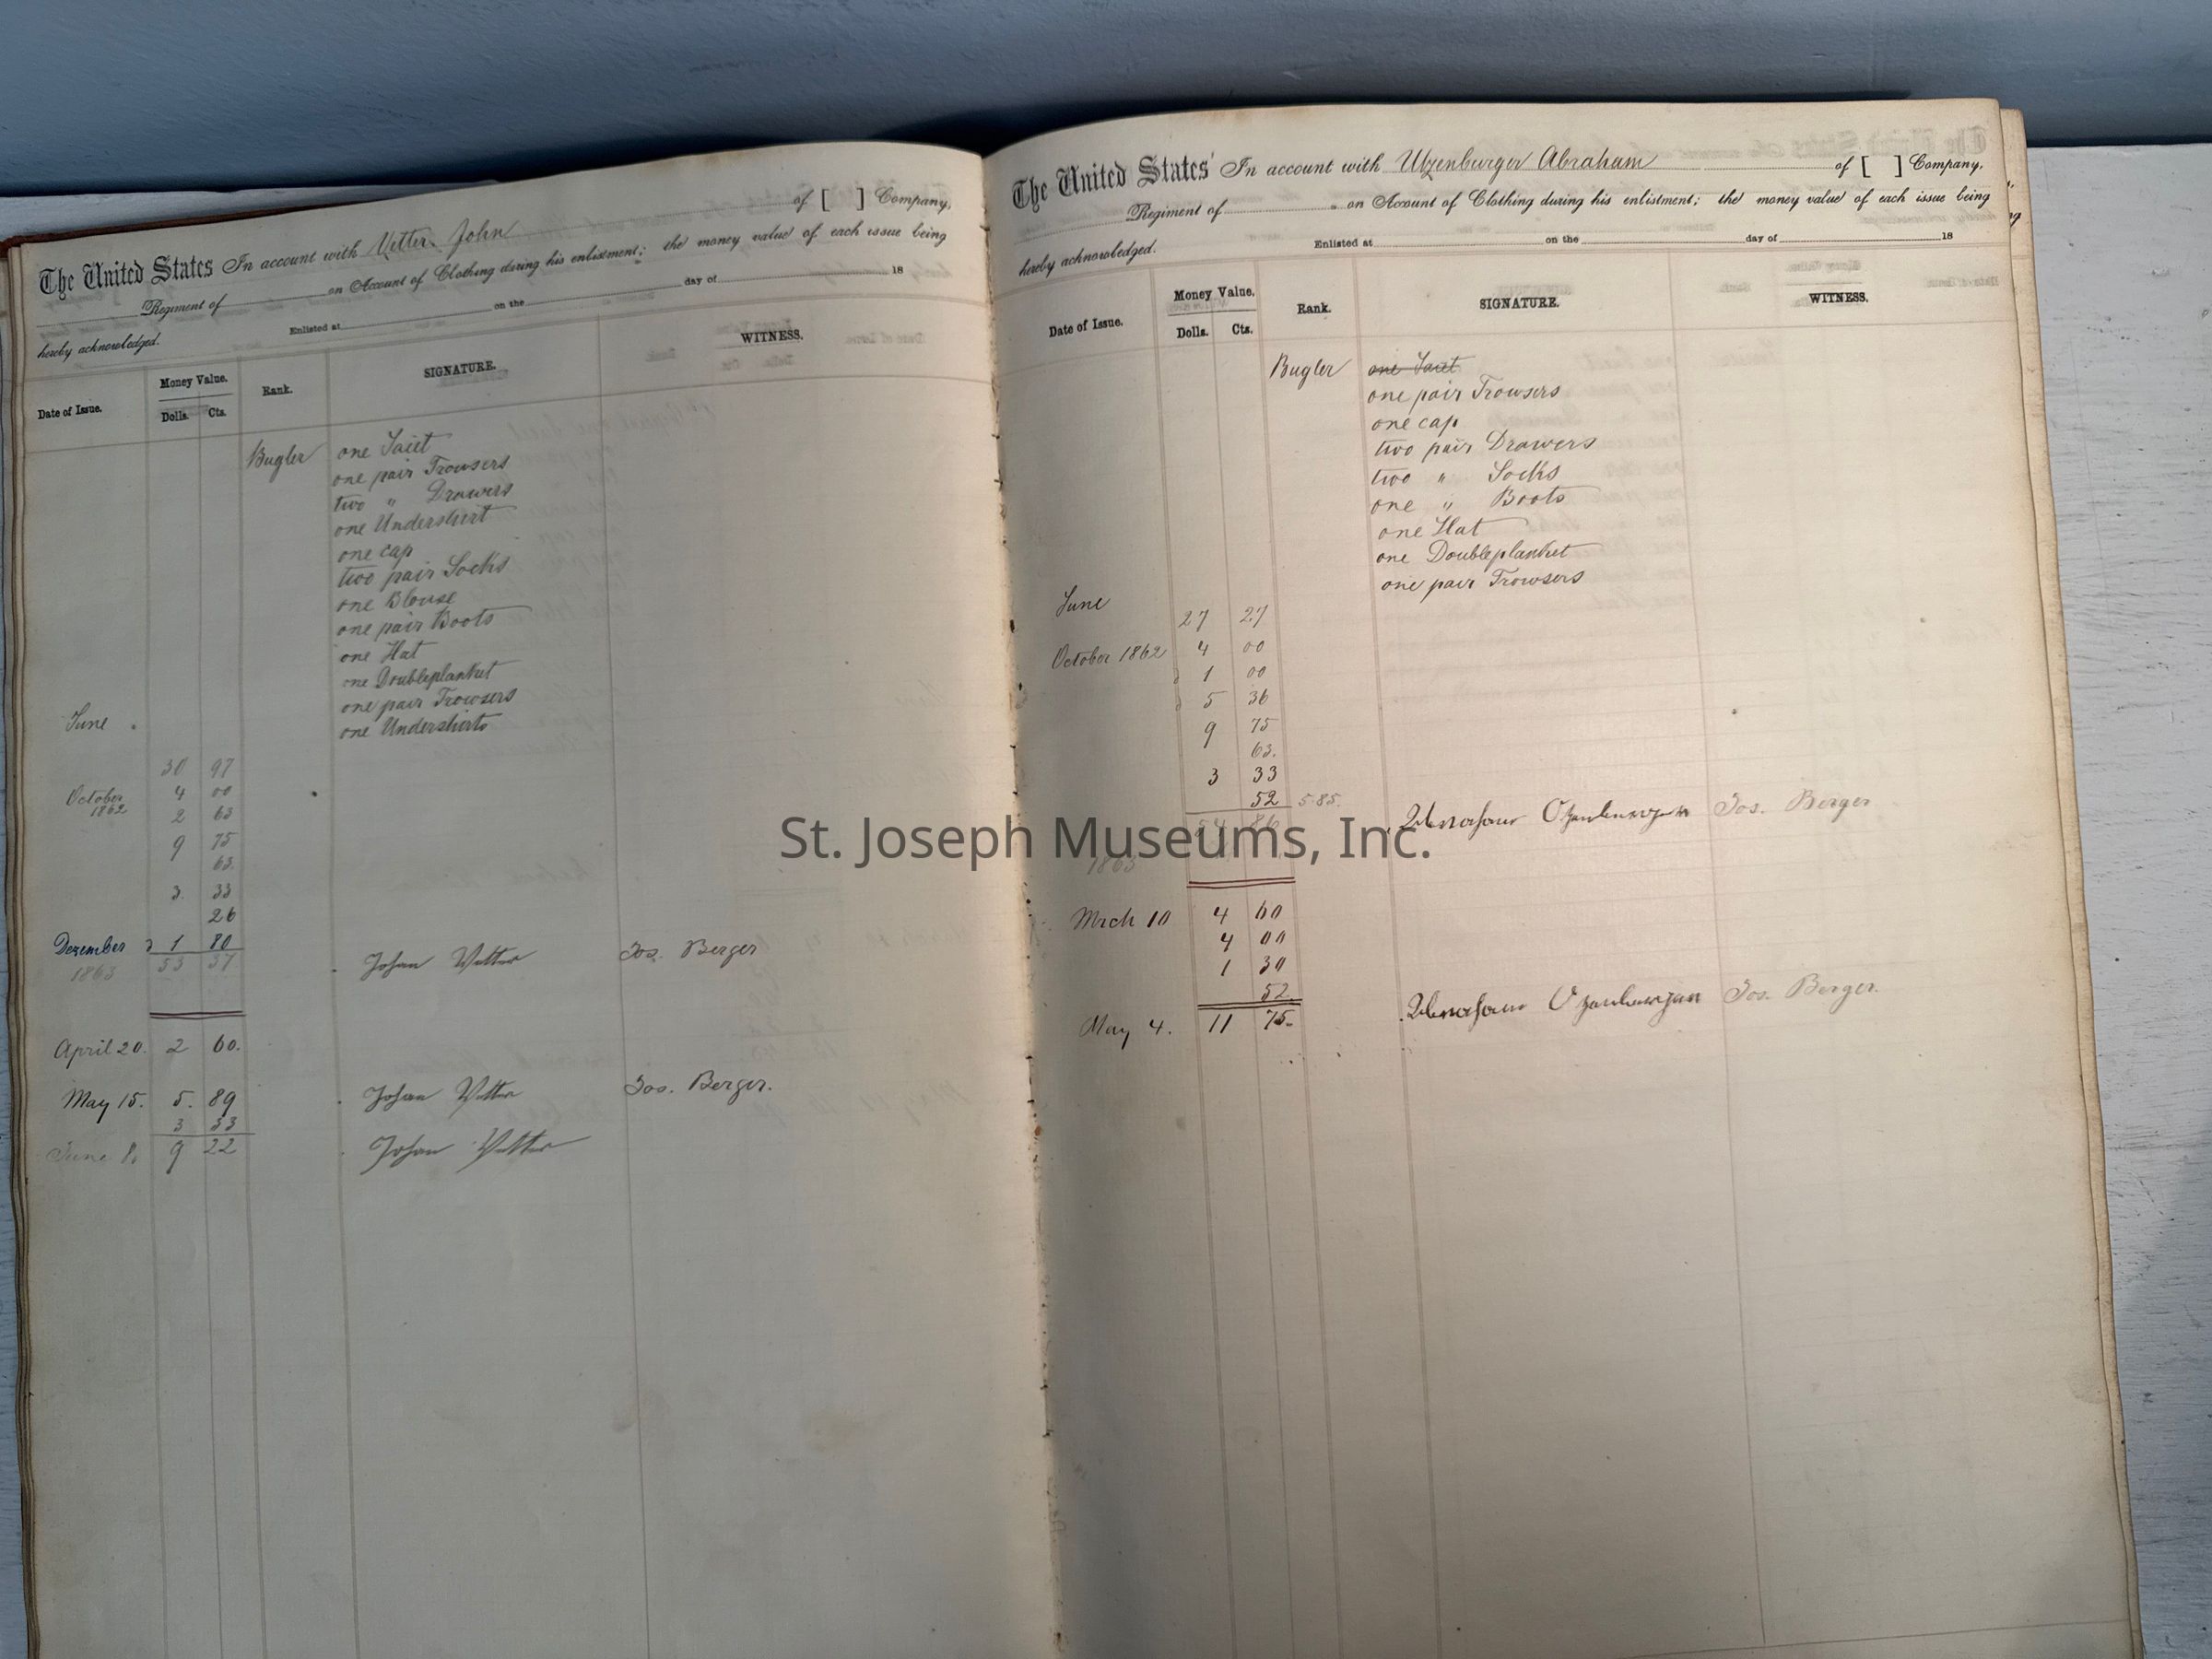 The United States In account with Vetter John of [ ] Company,
Regiment of on Account of Clothing during his enlistment; the money value of each issue being
hereby acknowledged. Enlisted at on the day of 18
Date of Issue. Money Value. Rank. SIGNATURE. WITNESS.
Dolls. Cts.
Bugler one Jaiet
one pair Trowsers
two " Drawers
one Undershirt
one cap
two pair Socks
one Blouse
one pair Boots
one Hat
one Doubleplanket
one pair Trowsers
June one Undershirts
30 97
October 1862 4 00
2 63
9 75
63.
3. 33
26
Dezember 1 80
1863 53 37 Johan Vetter Jos. Berger
April 20. 2 60.
May 15. 5. 89 Johan Vetter Jos. Berger.
3 33
June 8. 9 22 Johan Vetter
The United States In account with Utzenburger Abraham of [ ] Company,
Regiment of on Account of Clothing during his enlistment; the money value of each issue being
hereby acknowledged. Enlisted at on the day of 18
Date of Issue. Money Value. Rank. SIGNATURE. WITNESS.
Dolls. Cts.
Bugler one Jaiet
one pair Trowsers
one cap
two pair Drawers
two " Socks
one " Boots
one Hat
one Doubleplanket
one pair Trowsers
June 27 27
October 1862 4 00
1 00
5 36
9 75
63.
3 33
52 5.85. Jos. Berger
54 86
1863
Mrch 10 4 60
4 00
1 30
52.
May 4. 11 75. Jos. Berger.
St. Joseph Museums, Inc.